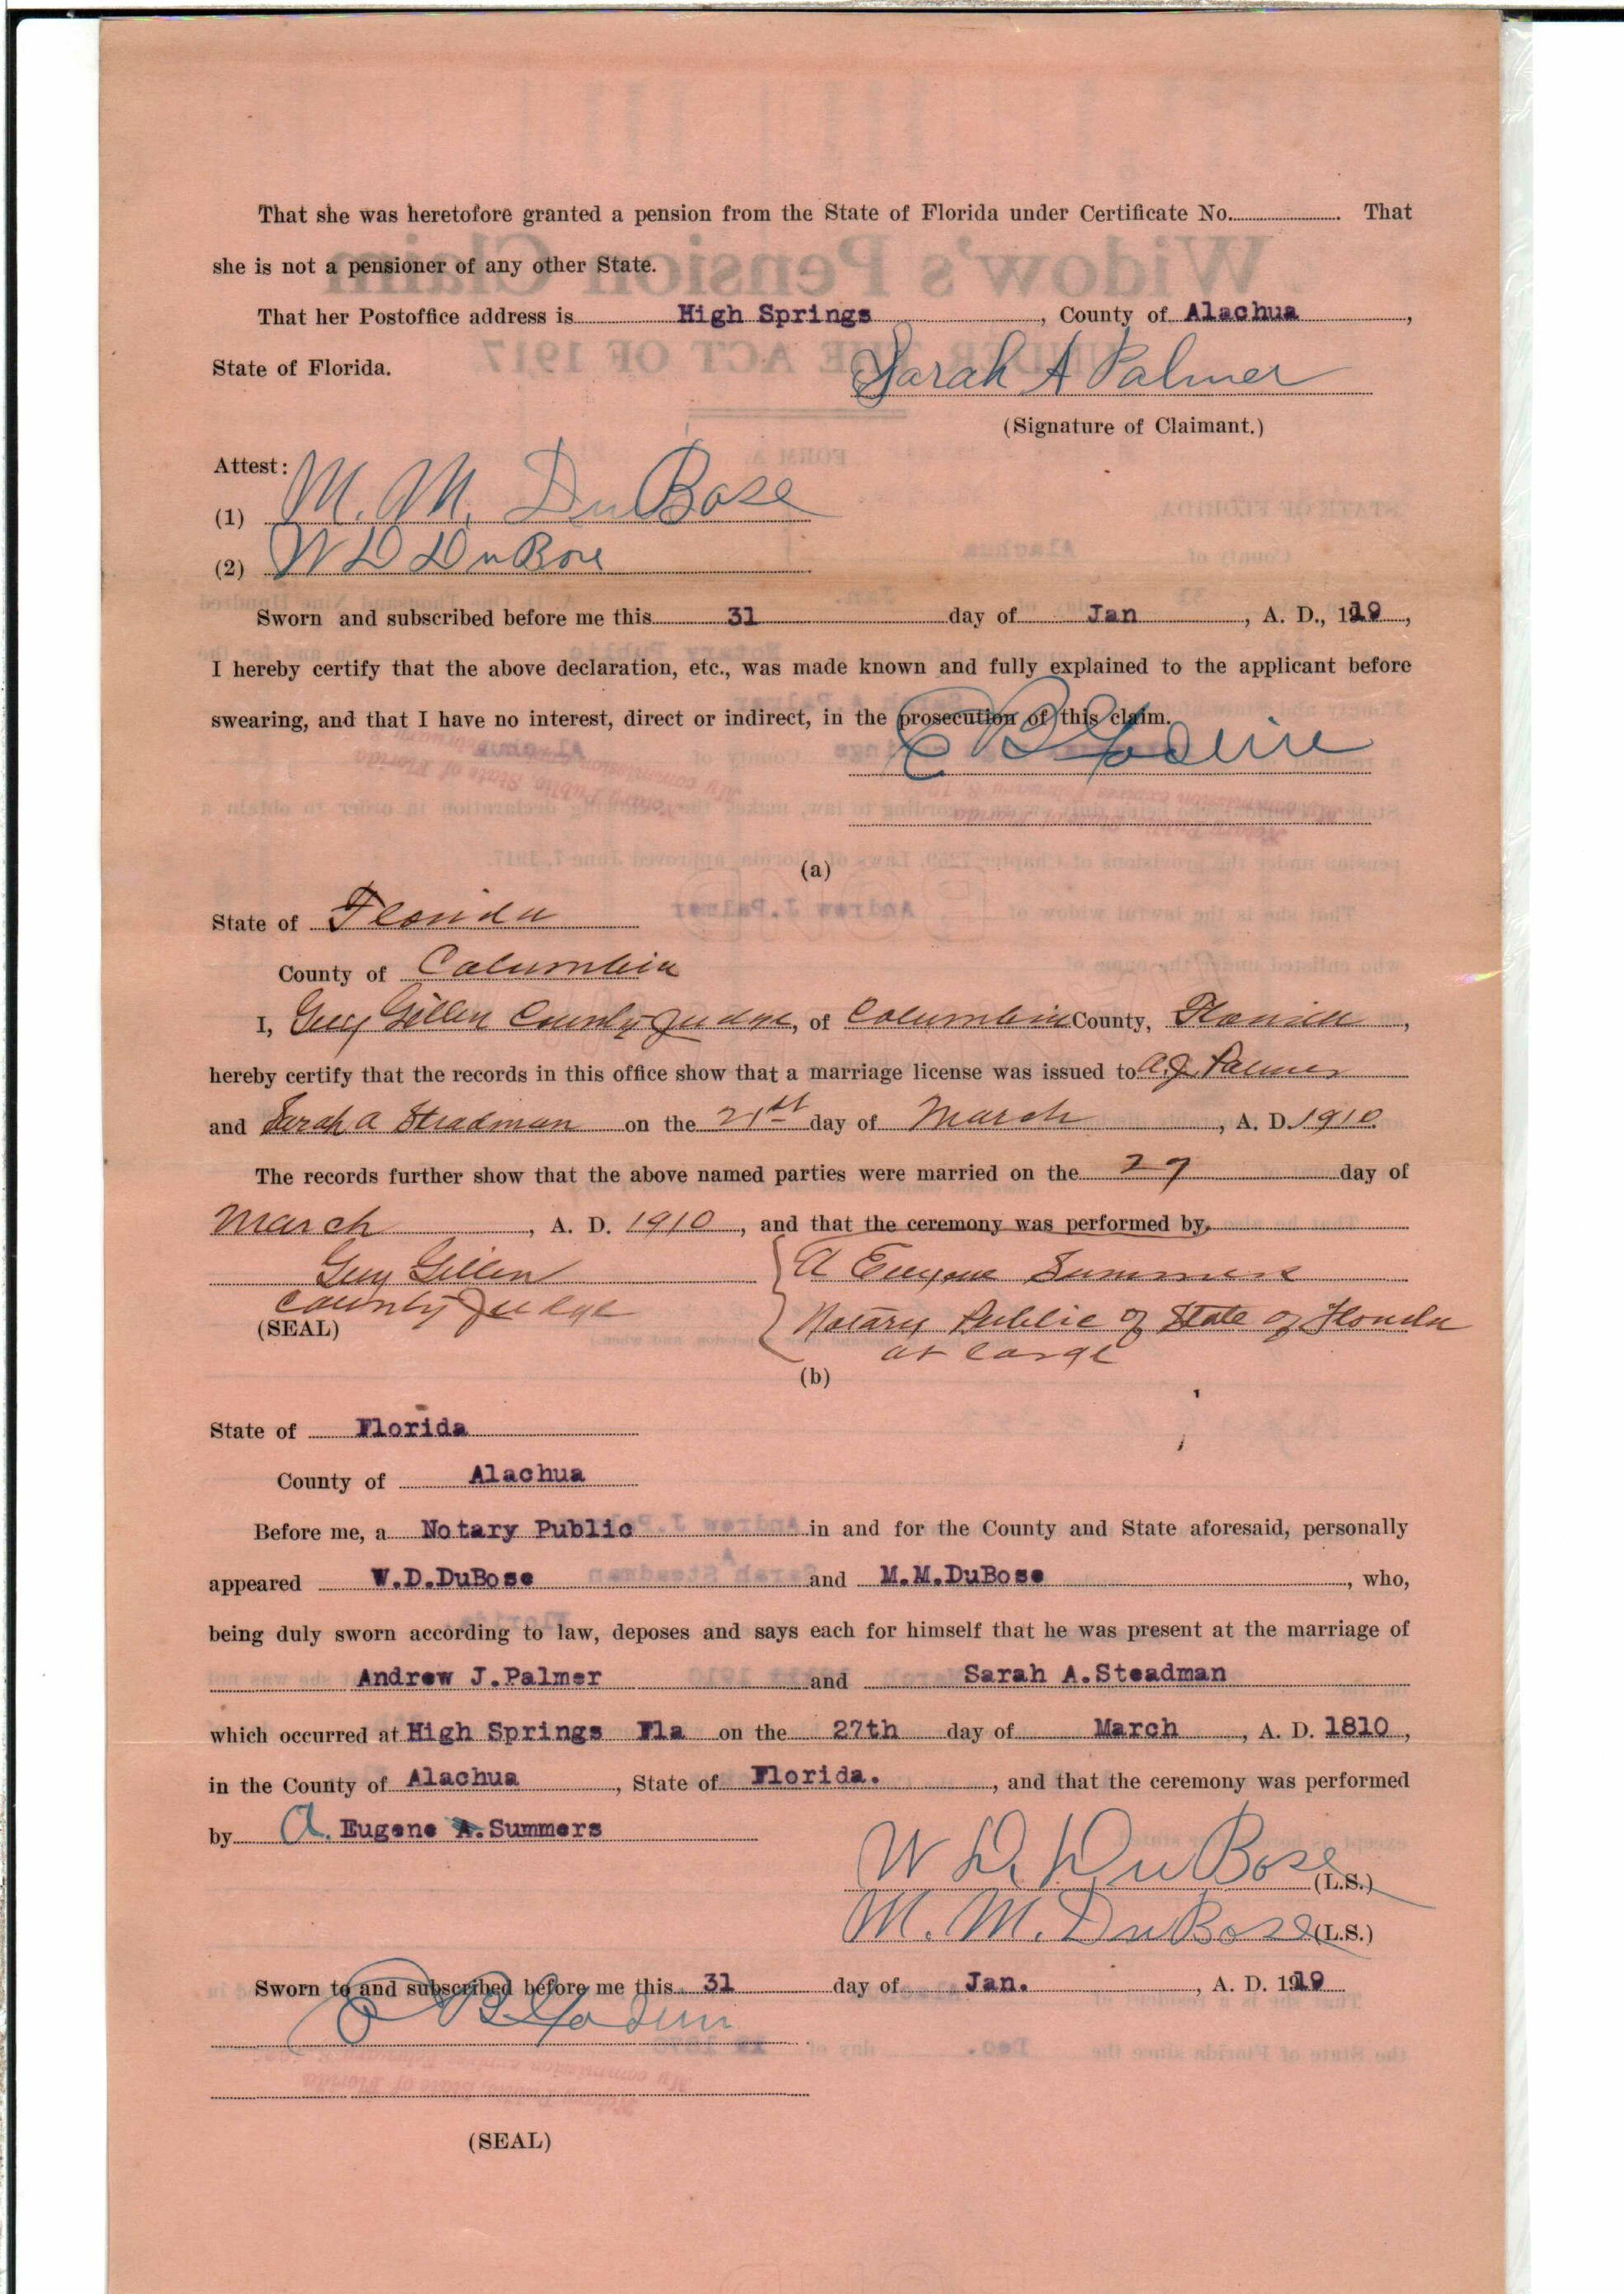 That she was heretofore granted a pension from the State of Florida under Certificate No. . That
she is not a pensioner of any other State.
That her Postoffice address is High Springs , County of Alachua ,
State of Florida. Sarah A Palmer
(Signature of Claimant.)
Attest:
(1) M. M. DuBose
(2) W D DuBose
Sworn and subscribed before me this 31 day of Jan , A. D., 1919 ,
I hereby certify that the above declaration, etc., was made known and fully explained to the applicant before
swearing, and that I have no interest, direct or indirect, in the prosecution of this claim.
(a)
State of Florida
County of Columbia
I, Guy Gillen County Judge, of Columbia County, Florida ,
hereby certify that the records in this office show that a marriage license was issued to A. J. Palmer
and Sarah A Steadman on the 21st day of March , A. D. 1910
The records further show that the above named parties were married on the 27 day of
March , A. D. 1910 , and that the ceremony was performed by
Guy Gillen A Eugene Summers
County Judge Notary Public of State of Florida
(SEAL) at large
(b)
State of Florida
County of Alachua
Before me, a Notary Public in and for the County and State aforesaid, personally
appeared W.D.DuBose and M.M.DuBose , who,
being duly sworn according to law, deposes and says each for himself that he was present at the marriage of
Andrew J.Palmer and Sarah A.Steadman
which occurred at High Springs Fla on the 27th day of March , A. D. 1810 ,
in the County of Alachua , State of Florida. , and that the ceremony was performed
by A. Eugene A.Summers
W. D. DuBose (L.S.)
M. M. DuBose (L.S.)
Sworn to and subscribed before me this 31 day of Jan. , A. D. 1919
(SEAL)